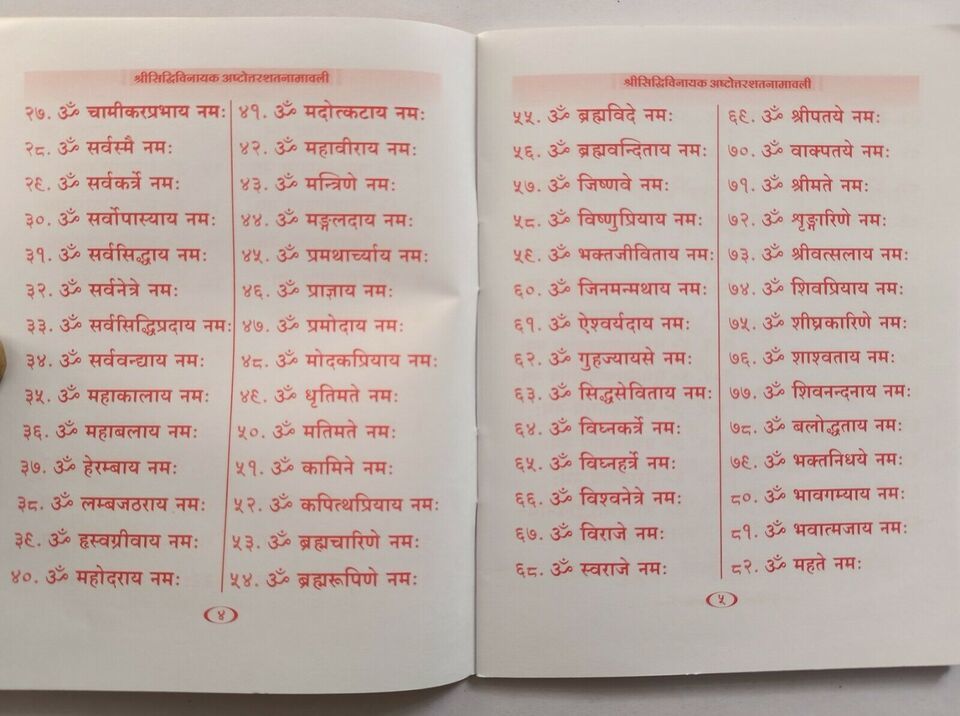 श्रीसिद्धिविनायक अष्टोत्तरशतनामावली
२७. ॐ चामीकरप्रभाय नमः
२८. ॐ सर्वस्मै नमः
२९. ॐ सर्वकर्त्रे नमः
३०. ॐ सर्वोपास्याय नमः
३१. ॐ सर्वसिद्धाय नमः
३२. ॐ सर्वनेत्रे नमः
३३. ॐ सर्वसिद्धिप्रदाय नमः
३४. ॐ सर्ववन्द्याय नमः
३५. ॐ महाकालाय नमः
३६. ॐ महाबलाय नमः
३७. ॐ हेरम्बाय नमः
३८. ॐ लम्बजठराय नमः
३९. ॐ हृस्वग्रीवाय नमः
४०. ॐ महोदराय नमः
४१. ॐ मदोत्कटाय नमः
४२. ॐ महावीराय नमः
४३. ॐ मन्त्रिणे नमः
४४. ॐ मङ्गलदाय नमः
४५. ॐ प्रमथार्च्याय नमः
४६. ॐ प्राज्ञाय नमः
४७. ॐ प्रमोदाय नमः
४८. ॐ मोदकप्रियाय नमः
४९. ॐ धृतिमते नमः
५०. ॐ मतिमते नमः
५१. ॐ कामिने नमः
५२. ॐ कपित्थप्रियाय नमः
५३. ॐ ब्रह्मचारिणे नमः
५४. ॐ ब्रह्मरूपिणे नमः
४
श्रीसिद्धिविनायक अष्टोत्तरशतनामावली
५५. ॐ ब्रह्मविदे नमः
५६. ॐ ब्रह्मवन्दिताय नमः
५७. ॐ जिष्णवे नमः
५८. ॐ विष्णुप्रियाय नमः
५९. ॐ भक्तजीविताय नमः
६०. ॐ जिनमन्मथाय नमः
६१. ॐ ऐश्वर्यदाय नमः
६२. ॐ गुहज्यायसे नमः
६३. ॐ सिद्धसेविताय नमः
६४. ॐ विघ्नकर्त्रे नमः
६५. ॐ विघ्नहर्त्रे नमः
६६. ॐ विश्वनेत्रे नमः
६७. ॐ विराजे नमः
६८. ॐ स्वराजे नमः
६९. ॐ श्रीपतये नमः
७०. ॐ वाक्पतये नमः
७१. ॐ श्रीमते नमः
७२. ॐ शृङ्गारिणे नमः
७३. ॐ श्रीवत्सलाय नमः
७४. ॐ शिवप्रियाय नमः
७५. ॐ शीघ्रकारिणे नमः
७६. ॐ शाश्वताय नमः
७७. ॐ शिवनन्दनाय नमः
७८. ॐ बलोद्धताय नमः
७९. ॐ भक्तनिधये नमः
८०. ॐ भावगम्याय नमः
८१. ॐ भवात्मजाय नमः
८२. ॐ महते नमः
५